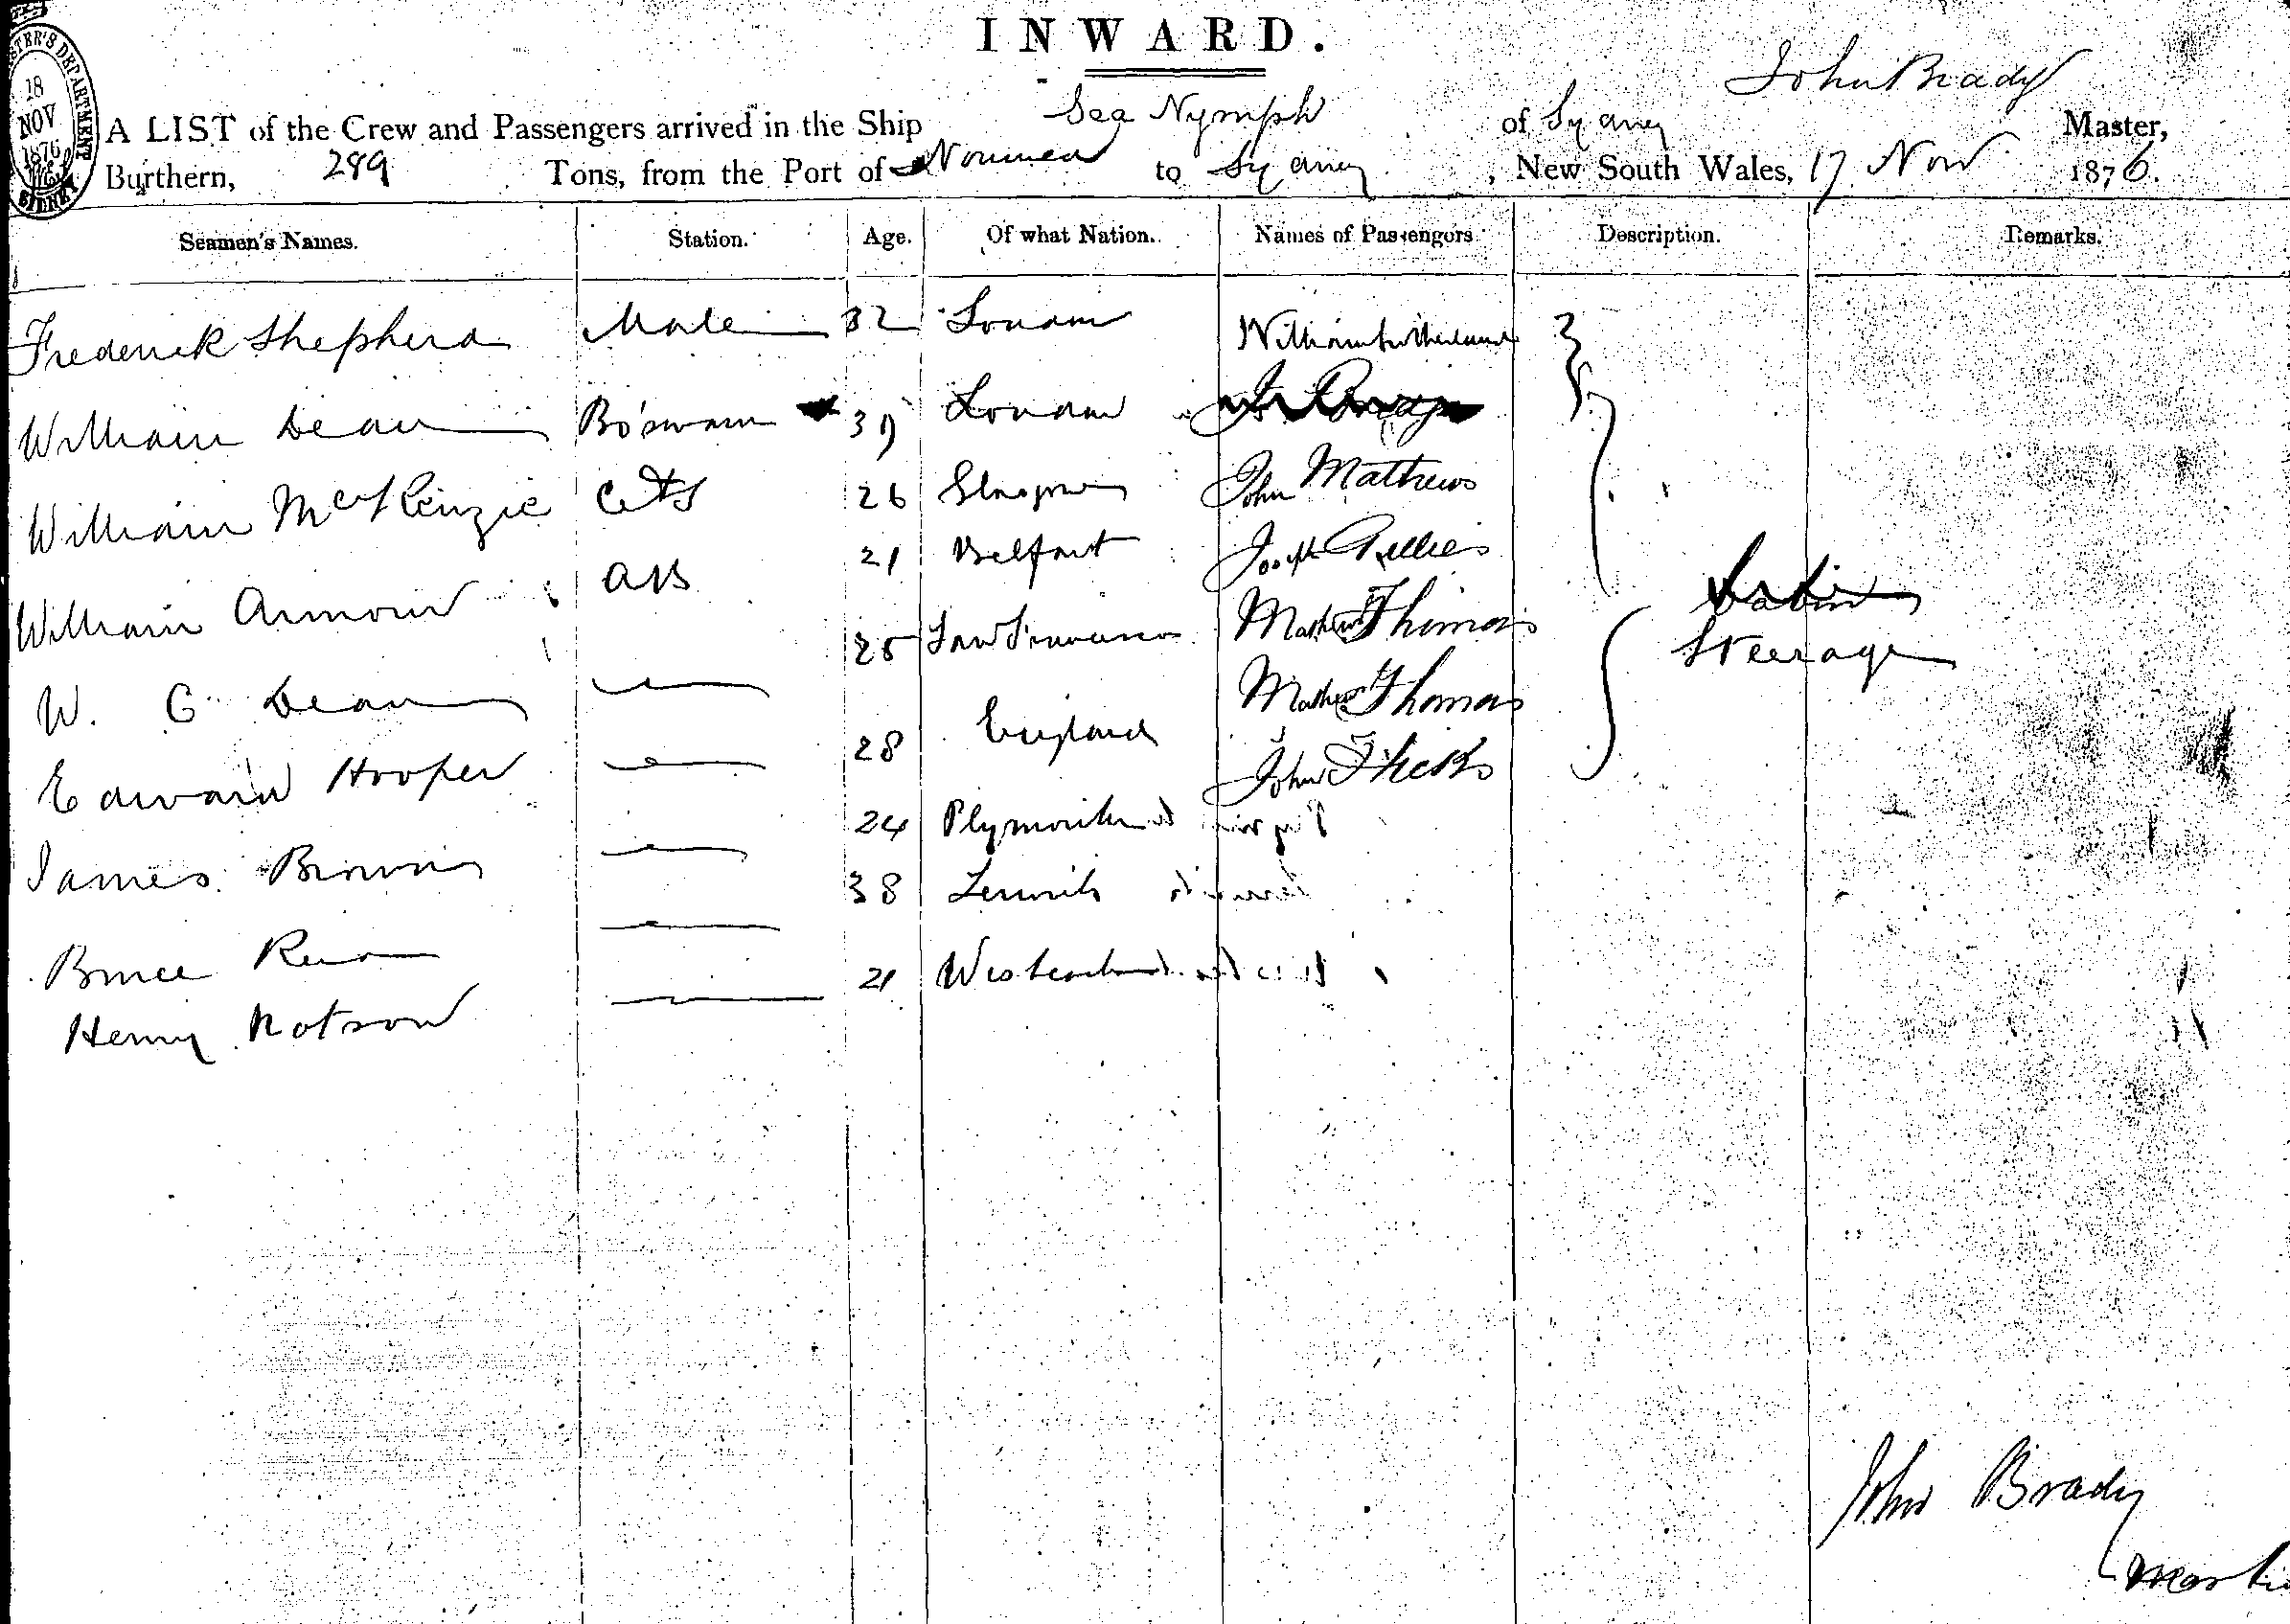 INWARD.
SHIPPING MASTER'S DEPARTMENT
18
NOV
1876
SYDNEY
A LIST of the Crew and Passengers arrived in the Ship Sea Nymph of Sydney John Brady Master,
Burthern, 289 Tons, from the Port of Noumea to Sydney, New South Wales, 17 Nov 1876.
Seamen's Names. Station. Age. Of what Nation. Names of Passengers Description. Remarks.
Frederick Shepherd Mate 32 London William Sutherland
William Dean Bo'swain 39 London
William McKenzie 26 Glasgow John Mathews
William Armour AB 21 Belfast Joseph
W. C Dean 25 San Francisco Mathew Thomas Cabin
Edward Hooper 28 England Mathew Thomas Steerage
James Brown 24 Plymouth John
Bruce 38 Lerwick
Henry 21
John Brady
Master